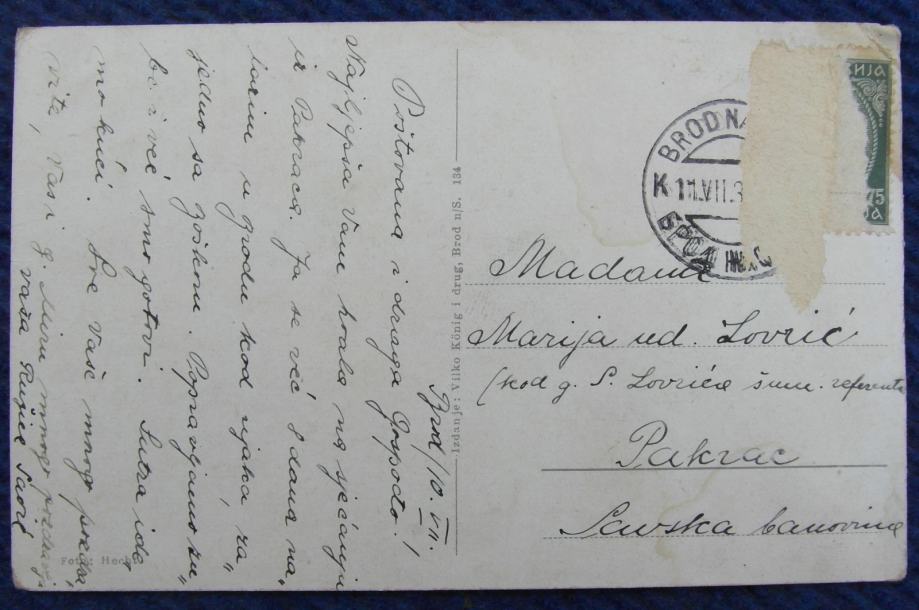 Brod/10. VII.
Poštovana i draga Gospođo!
Najljepša Vam hvala na sjećanju
iz Pakraca. Ja se već 8 dana na„
lazim u Brodu kod ujaka, za„
jedno sa Zoškom Popravljamo zu„
be i već smo gotovi. Sutra ide„
mo kući. Sve Vaše mnogo pozdra„
vite, Vas i g. Miru mnogo pozdravlja
vaša Ružica Šarić
Foto: Hecht
Izdanje: Vilko König i drug, Brod n/S. 134
BROD NA
K 11.VII.3
БРОД НА С
ИЈА
75
JA
Madame
Marija ud. Lovrić
(kod g. S. Lovrića šum. referenta
Pakrac
Savska banovina